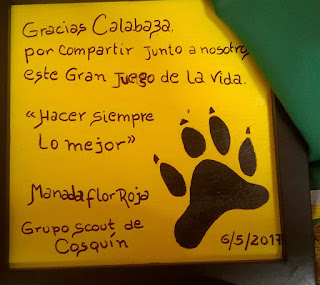 Gracias Calabaza,
por compartir junto a nosotros
este Gran Juego de La Vida.
«Hacer siempre
Lo mejor»
Manada flor Roja
Grupo scout de
Cosquín
6/5/2017